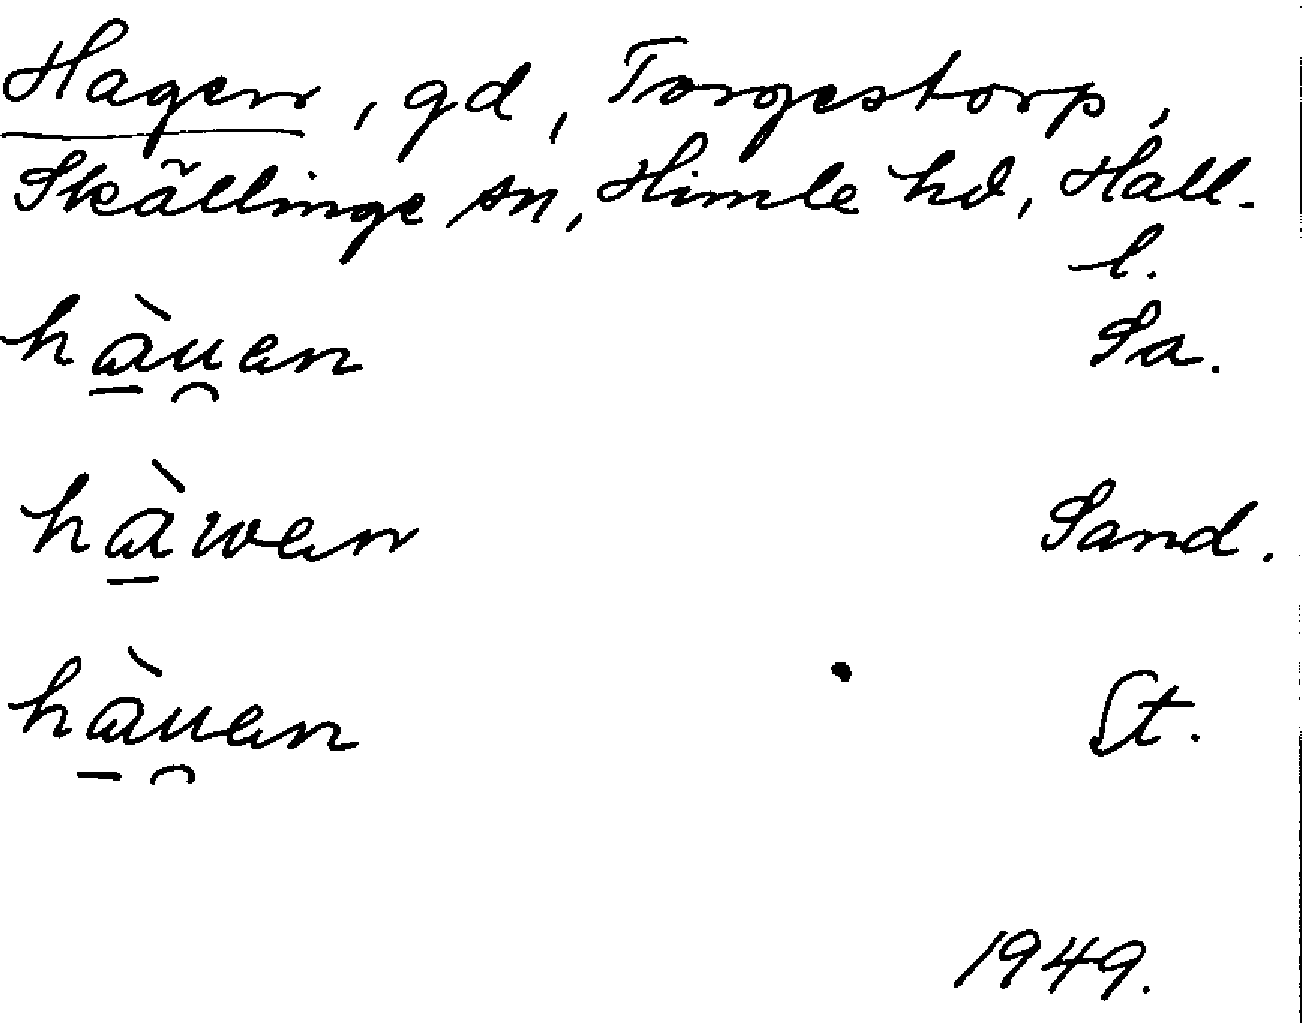 Hagen, gd, Torgestorp,
Skällinge sn, Himle hd, Hall-
l.
hà̱u̯an Sa.
hà̱wan Sand.
hà̱u̯an St.
1949.